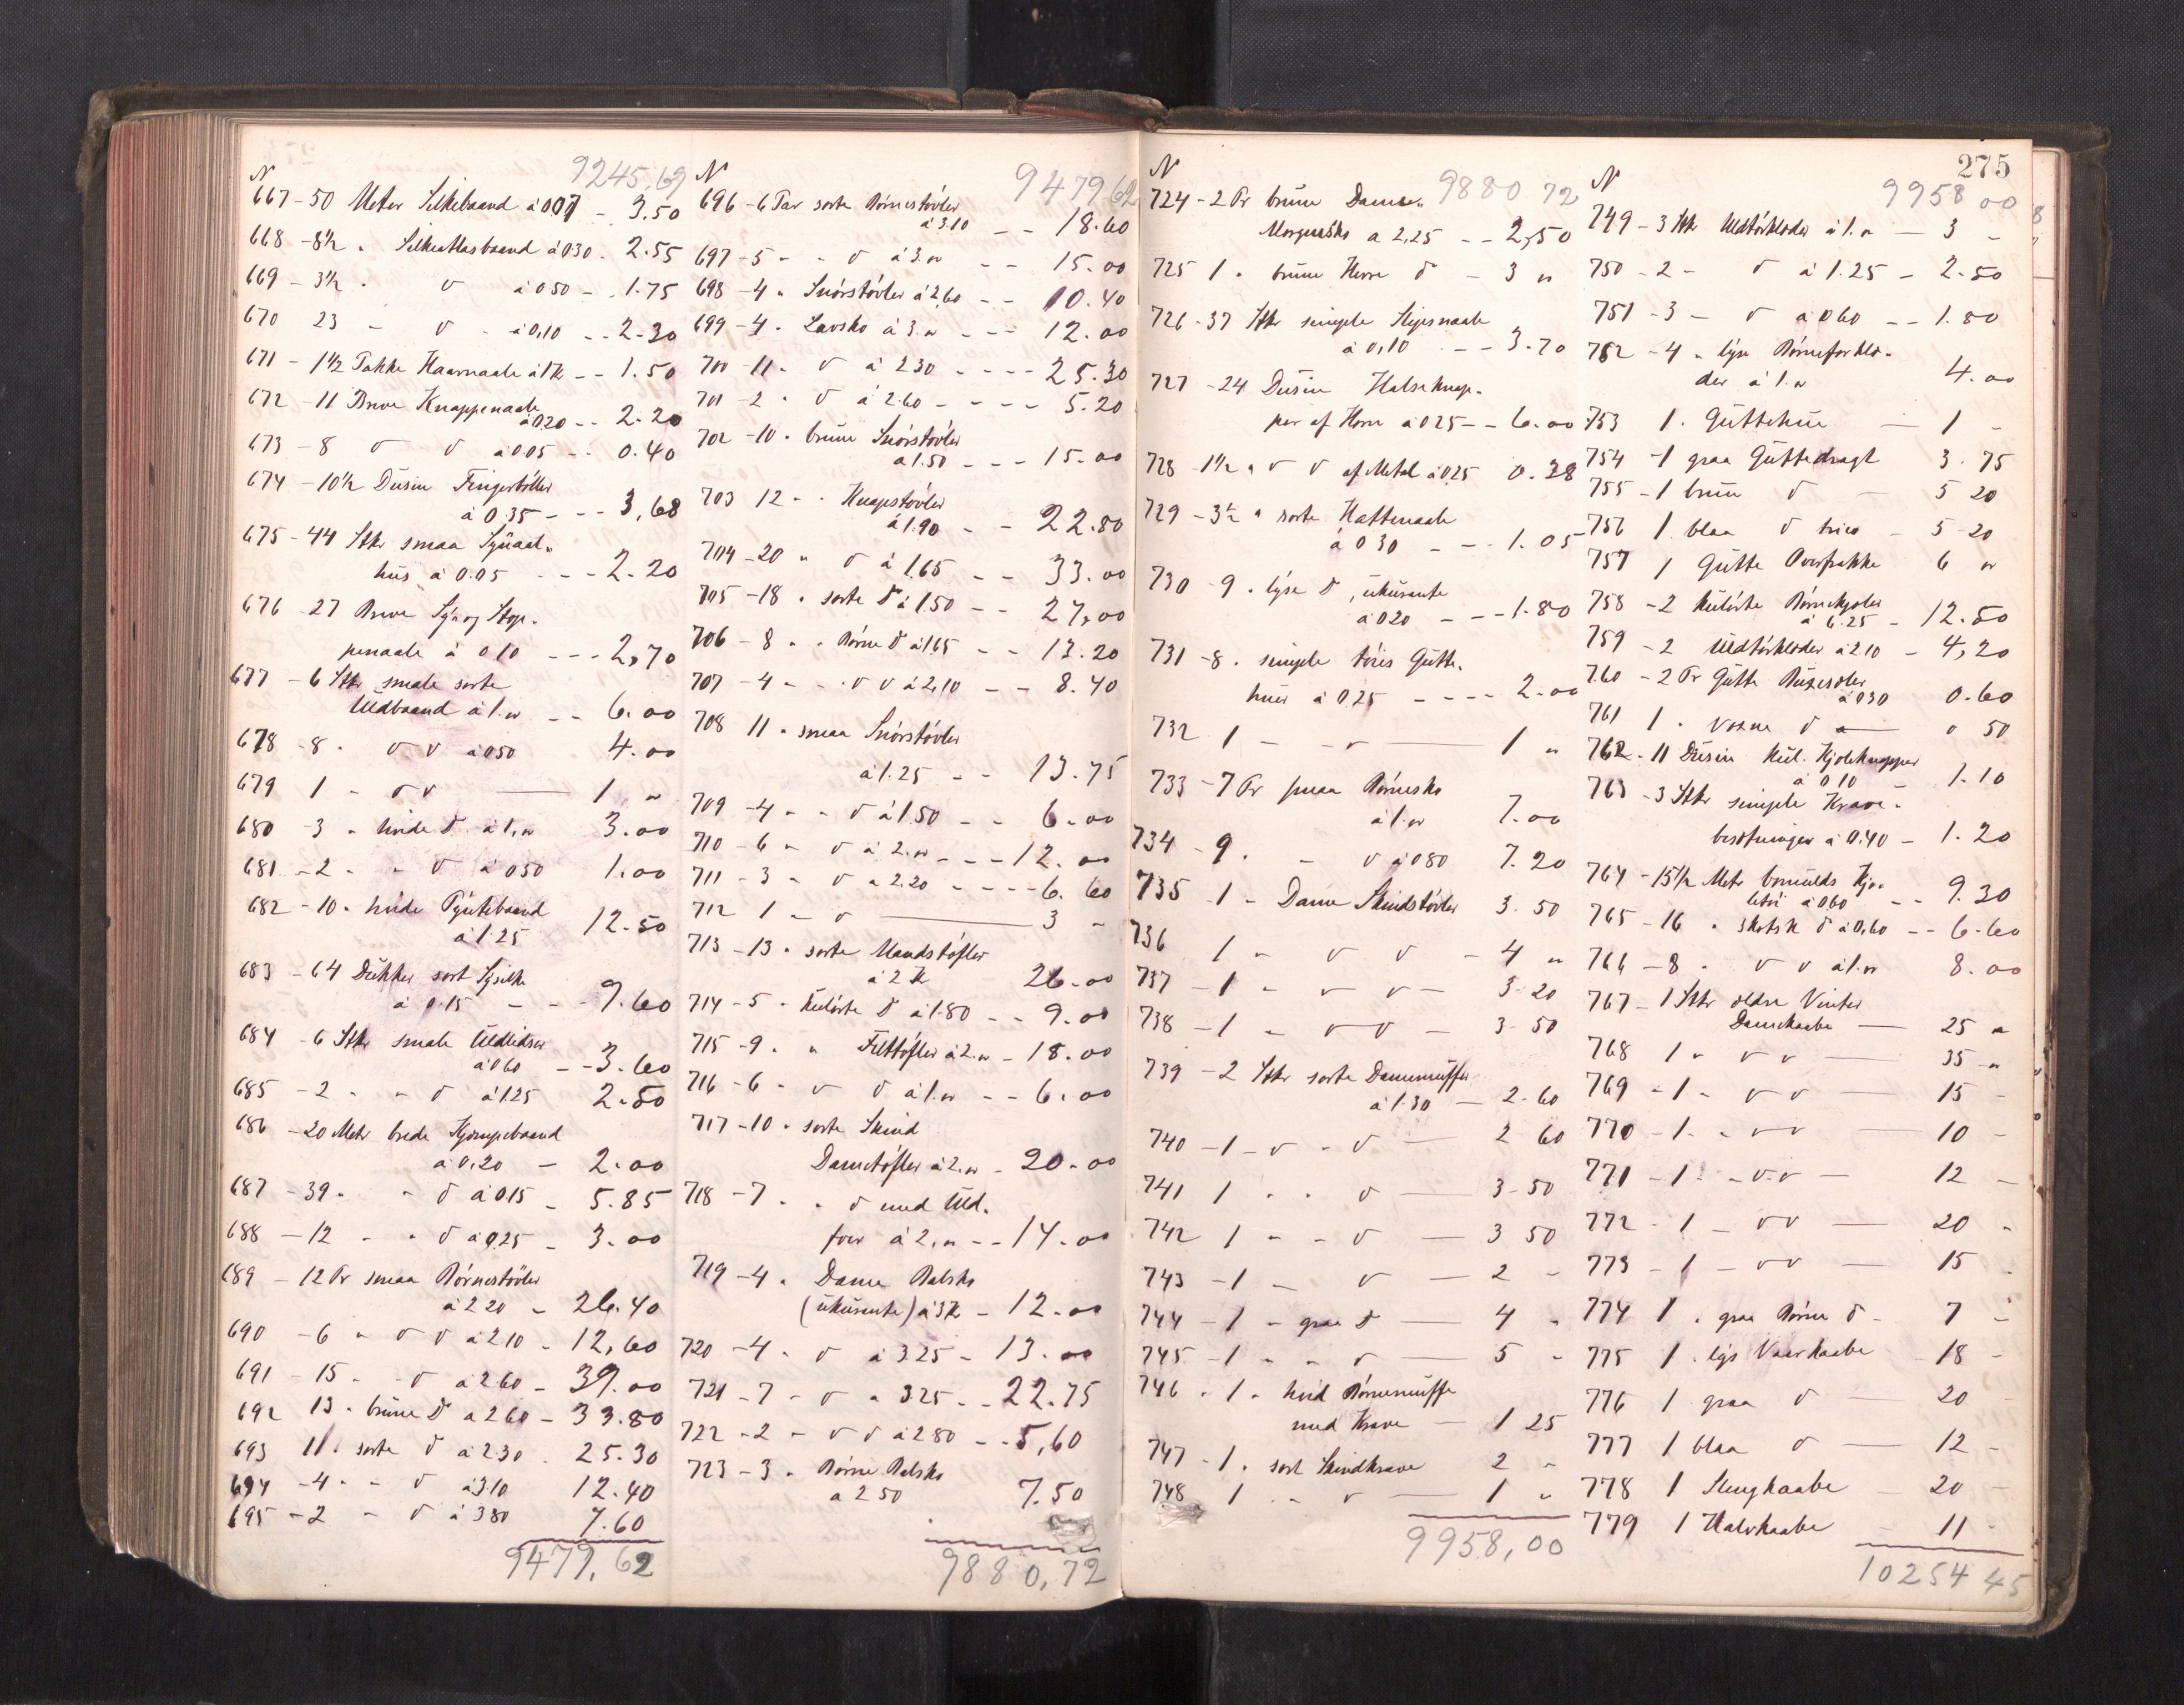 N 9245,62
667 - 50 Meter Silkebaand à 007 - 3.50
668 - 8½ " Silkeatlasbaand à 030 - 2.55
669 - 3½ " d à 050 - - 1.75
670 23 - d - à 0,10 - - 2.30
671 - 1½ Pakke Haarnaale à 1 Kr - - 1.50
672 - 11 Breve Knappenaale
à 020 - - 2.20
673 - 8 d d à 005 - - 0.40
674 - 10½ Dusin Fingerbøller
à 0.35 - - - 3,68
675 - 44 Stkr smaa Synaal-
hus à 0.05 - - - 2.20
676 - 27 Breve Sy og Stop-
penaale à 010 - - - 2,70
677 - 6 Stkr smale sorte
Uldbaand à 1. " - - 6.00
678 - 8 " d d à 050 4.00
679 1 - d d — 1 "
680 - 3 " hvide d à 1, " 3.00
681 - 2 - " d à 050 1.00
682 - 10 " hvide Pyntebaand
à 1.25 12.50
683 - 64 Dukker sort Sysilke
à 0.15 - - - 9.60
684 - 6 Stkr smale Uldlidser
à 060 - - 3.60
685 - 2 - " d à 1.25 2.50
686 - 20 Metr brede
à 0.20 - 2.00
687 - 39 " " d à 015 - 5.85
688 - 12 - " d à 0,25 - 3.00
689 - 12 Pr smaa Børnestøvler
à 2 20 - 26.40
690 - 6 " d d à 210 - 12,60
691 - 15 " - d à 260 - 39.00
692 13 " brune d a 260 - 33.80
693 11 " sorte d a 230 . 25.30
694 - 4 " - d à 3.10 12.40
695 - 2 - d à 380 7.60
9479,62
N 9479 62
696 - 6 Par sorte Børnestøvler
à 3.10 - - 18.60
697 - 5 - " d à 3. " - - 15.00
698 - 4 " Snørstøvler à 2,60 - - 10.40
699 - 4 " Lavsko à 3. " - - - 12.00
700 - 11 " d à 2 30 - - - - 25.30
701 - 2 " d à 2.60 - - - - 5.20
702 - 10 " brune Snørstøvler
à 1.50 - - - 15.00
703 12 - " Knapstøvler
à 1.90 - - 22.80
704 - 20 " d à 1,65 - - 33.00
705 - 18 " sorte d à 1.50 - - 27,00
706 - 8 " " Børne d à 1.65 - - 13.20
707 - 4 - - " d d à 2,10 - - 8.40
708 11 " smaa Snørstøvler
à 1.25 - - 13.75
709 - 4 - " d à 1.50 - - 6.00
710 - 6 " d à 2. " - - - 12.00
711 - 3 " d " 2.20 - - - - 6.60
712 1 - d — 3 -
713 - 13 " sorte Mandstøfler
à 2 Kr 26.00
714 - 5 " kulørte d à 1.80 - - 9.00
715 - 9 " " Filttøfler à 2. " - 18.00
716 - 6 " d d à 1. " - - 6.00
717 - 10 " sorte Skind
Dametøfler à 2. " - 20.00
718 - 7 " " d med Uld-
foer à 2, " - - 14.00
719 - 4 " Dame Balsko
(ukurante) à 3 Kr - 12.00
720 - 4 " d à 325 - 13.00
721 - 7 - d " 325 - - 22.75
722 - 2 - d d à 280 - - 5,60
723 - 3 " Børne Balsko
a 2 50 7.50
9880,72
N 9880 72
724 - 2 Pr brune Dame-
Morgensko a 2,25 - - 2,50
725 1 " brune Herre d - 3 "
726 - 37 Stkr simple Slipsnaale
à 0,10 - - 3.70
727 - 24 Dusin Halseknap-
per af Horn à 025 - - 6.00
728 - 1½ " d d af Metal à 0,25 0.38
729 - 3½ " sorte Hattenaale
à 0 30 - - - 1.05
730 - 9 " lyse d, ukurante
à 020 - - - 1.80
731 - 8 . simple Gutte-
huer à 0.25 - - - - 2.00
732 1 - - d — 1 "
733 - 7 Pr smaa Børnesko
à 1. " 7.00
734 - 9 . - d à 080 7.20
735 - 1 - Dame Skindstøvler 3.50
736 1 " d d - 4 "
737 - 1 " d d - 3.20
738 - 1 - d d - 3.50
739 - 2 Stkr sorte Damemuffer
à 1.30 - 2.60
740 - 1 - d - d - 2 60
741 1 " . d — 3.50
742 1 - - d — 3 50
743 - 1 - d — 2 -
744 - 1 - graa d — 4 "
745 - 1 " " d — 5 "
746 - 1 " hvid Børnemuffe
med Krave - 1 25
747 - 1 . sort Skindkrave 2 "
748 1 . - d — 1 "
9958,00
275
N 9958 00
749 - 3 Stkr Uldtørklæder à 1. " — 3 -
750 - 2 - d à 1.25 - 2.50
751 - 3 - d à 060 - - 1.80
752 - 4 " lyse Børneforklæ-
der à 1. " 4.00
753 1 . Guttehue — 1 -
754 - 1 graa Guttedragt 3.75
755 - 1 brun d — 5 20
756 1 blaa d trico - 5.20
757 1 Gutte Overfrakke 6 "
758 - 2 kulørte Børnekjoler
à 6.25 - 12.50
759 - 2 Uldtørklæder à 2.10 - 4,20
760 - 2 Pr Gutte Buxeseler
à 030 0.60
761 1 . voxne d — 0 50
762 - 11 Dusin kul. Kjoleknapper
à 010 1.10
763 - 3 Stkr simple Krave-
besætninger à 0.40 - 1.20
764 - 15½ Metr bomulds Kjo-
letøi à 060 - - 9.30
765 - 16 " skotsk d à 0,60 - - 6.60
766 - 8 . d d à 1. " 8.00
767 - 1 Stkr ældre Vinter
Damekaabe — 25 "
768 1 " d d — 35 - "
769 - 1 - d d — 15 -
770 - 1 - " d d — 10 -
771 - 1 - - d d — 12 -
772 - 1 - d d — 20 -
773 - 1 - d d — 15 -
774 1 . graa Børne d - 7 -
775 1 . lys Vaarkaabe 18 -
776 1 graa d — 20 -
777 1 blaa d — 12 -
778 1 Slengkaabe - 20 -
779 1 Halvkaabe - 11 -
10254 45